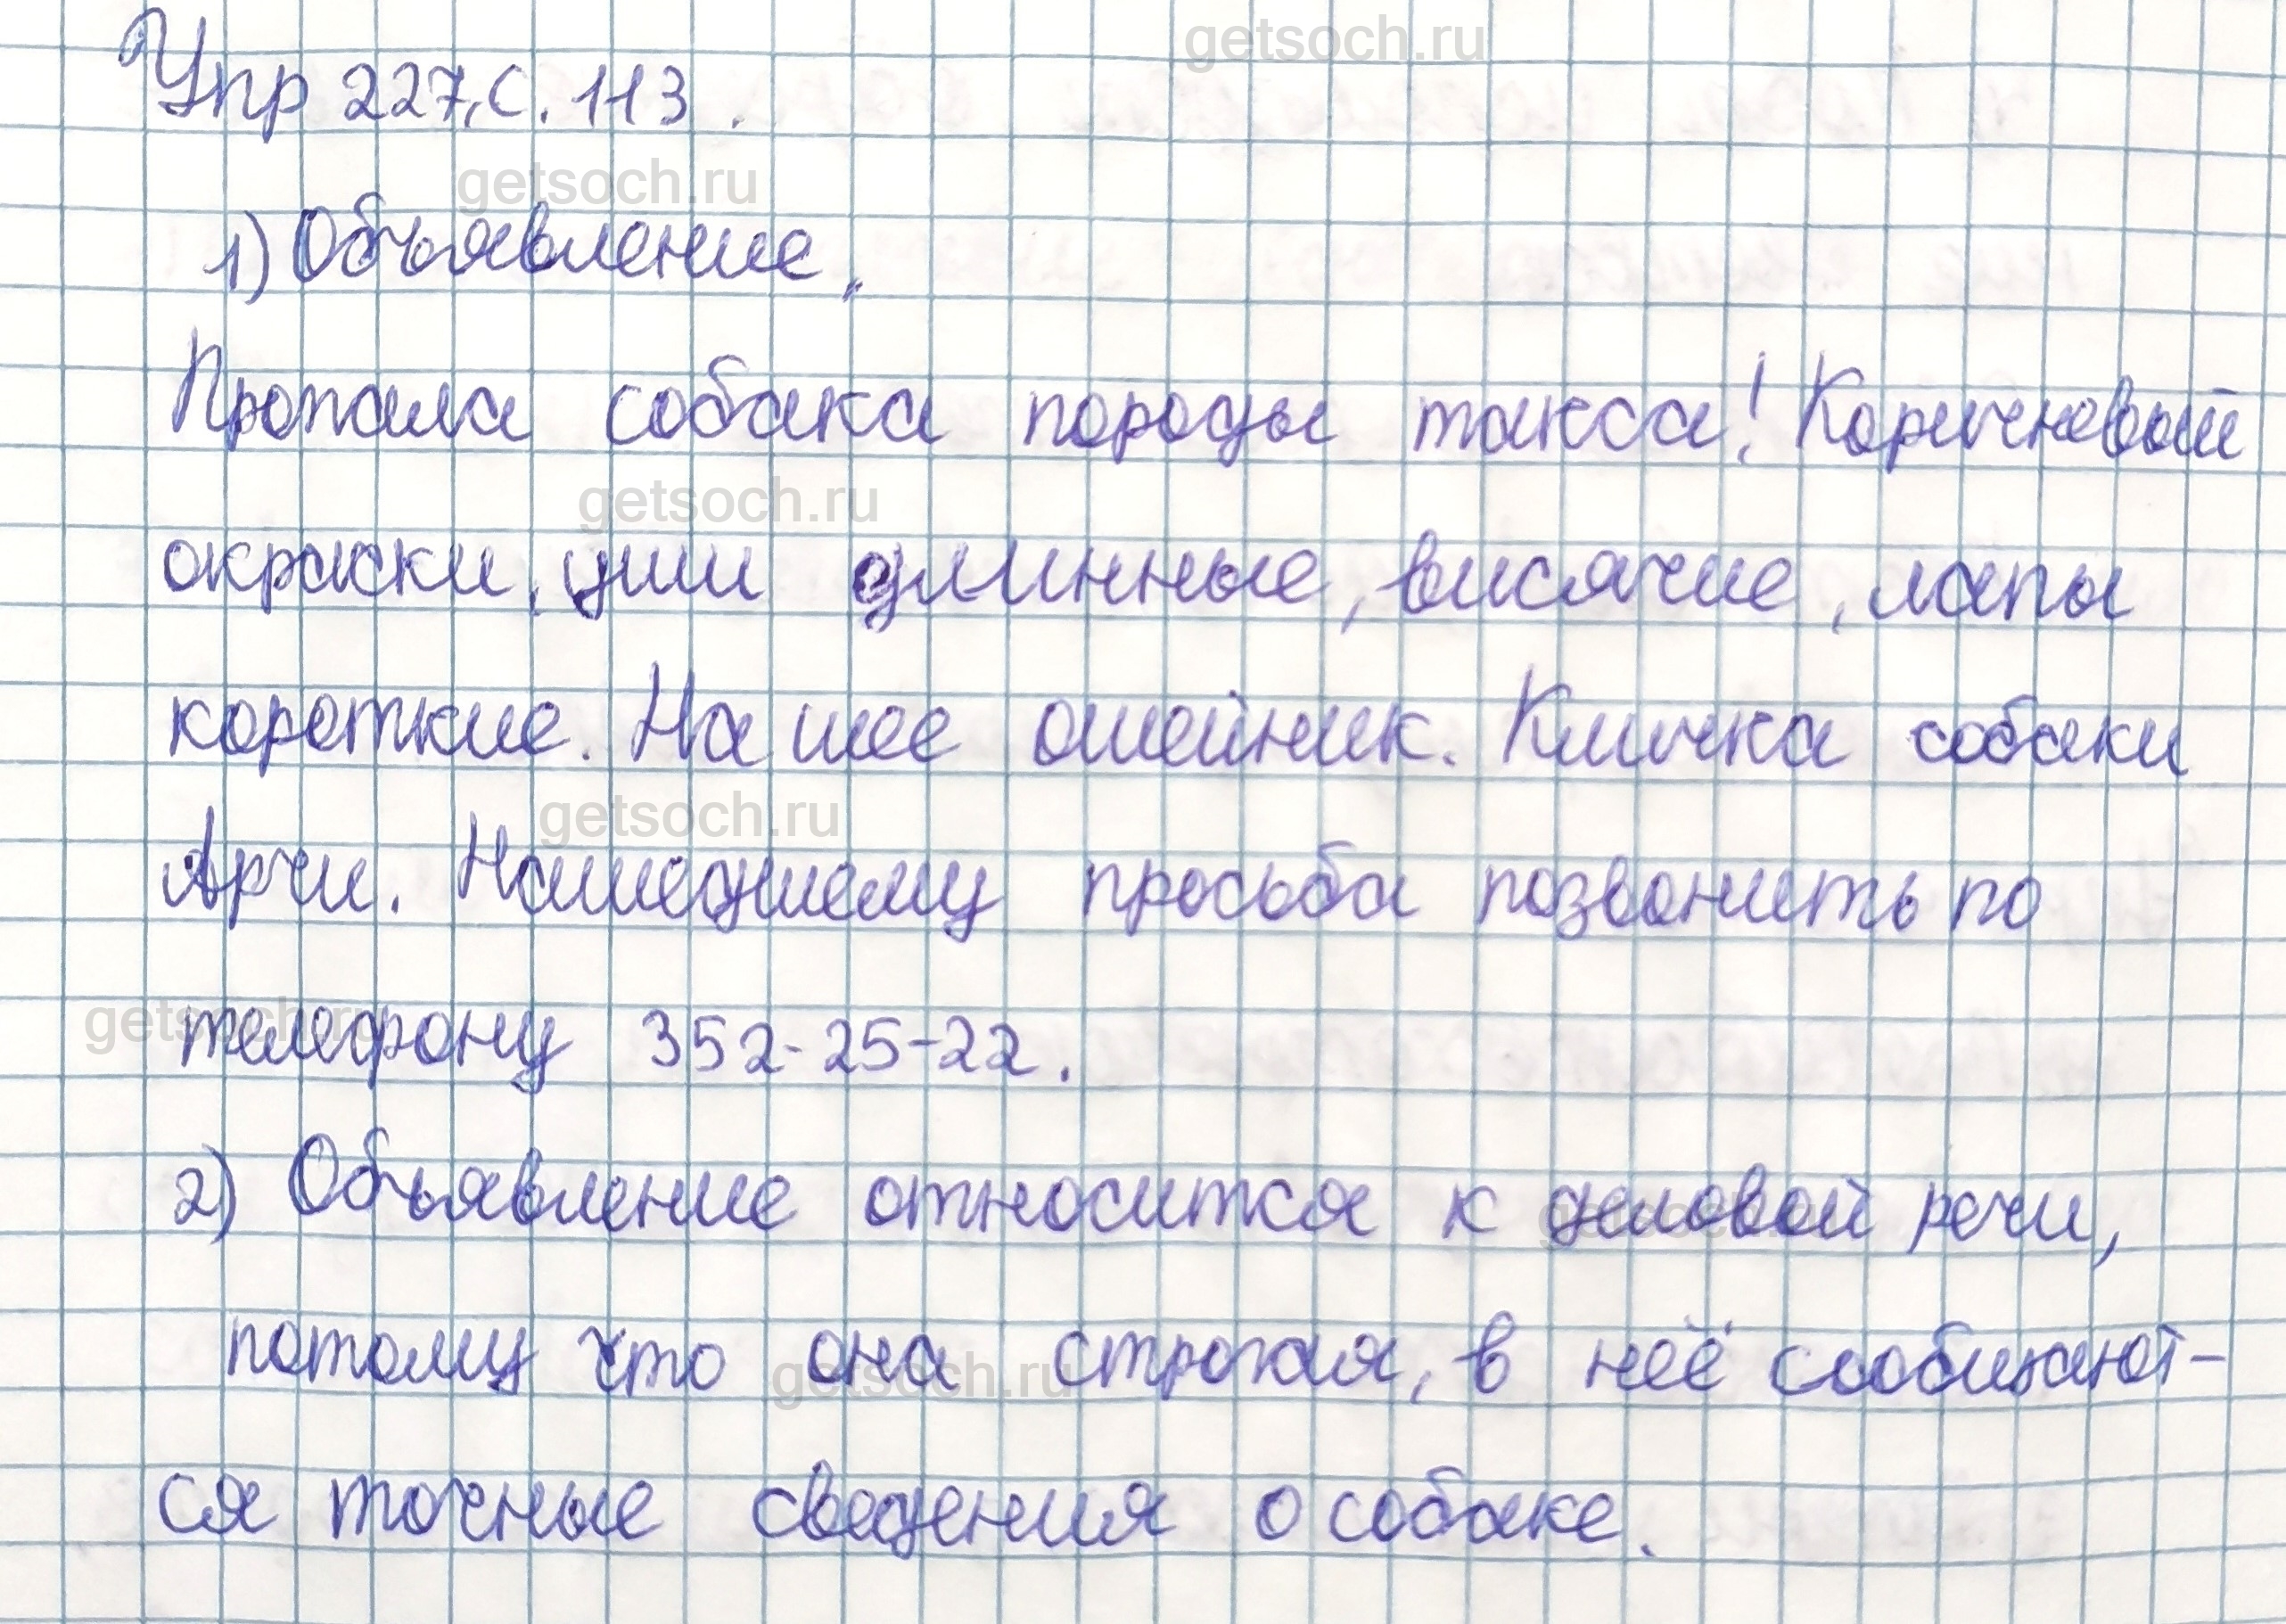 getsoch.ru
Упр 227, с. 113.
getsoch.ru
1) Объявление.
Пропала собака породы такса! Коричневой
getsoch.ru
окраски, уши длинные, висячие, лапы
короткие. На шее ошейник. Кличка собаки
getsoch.ru
Арчи. Нашедшему просьба позвонить по
getsoch.ru
телефону 352-25-22.
2) Объявление относится к деловой речи,
getsoch.ru
потому что она строгая, в неё сообщают-
getsoch.ru
ся точные сведения о собаке.